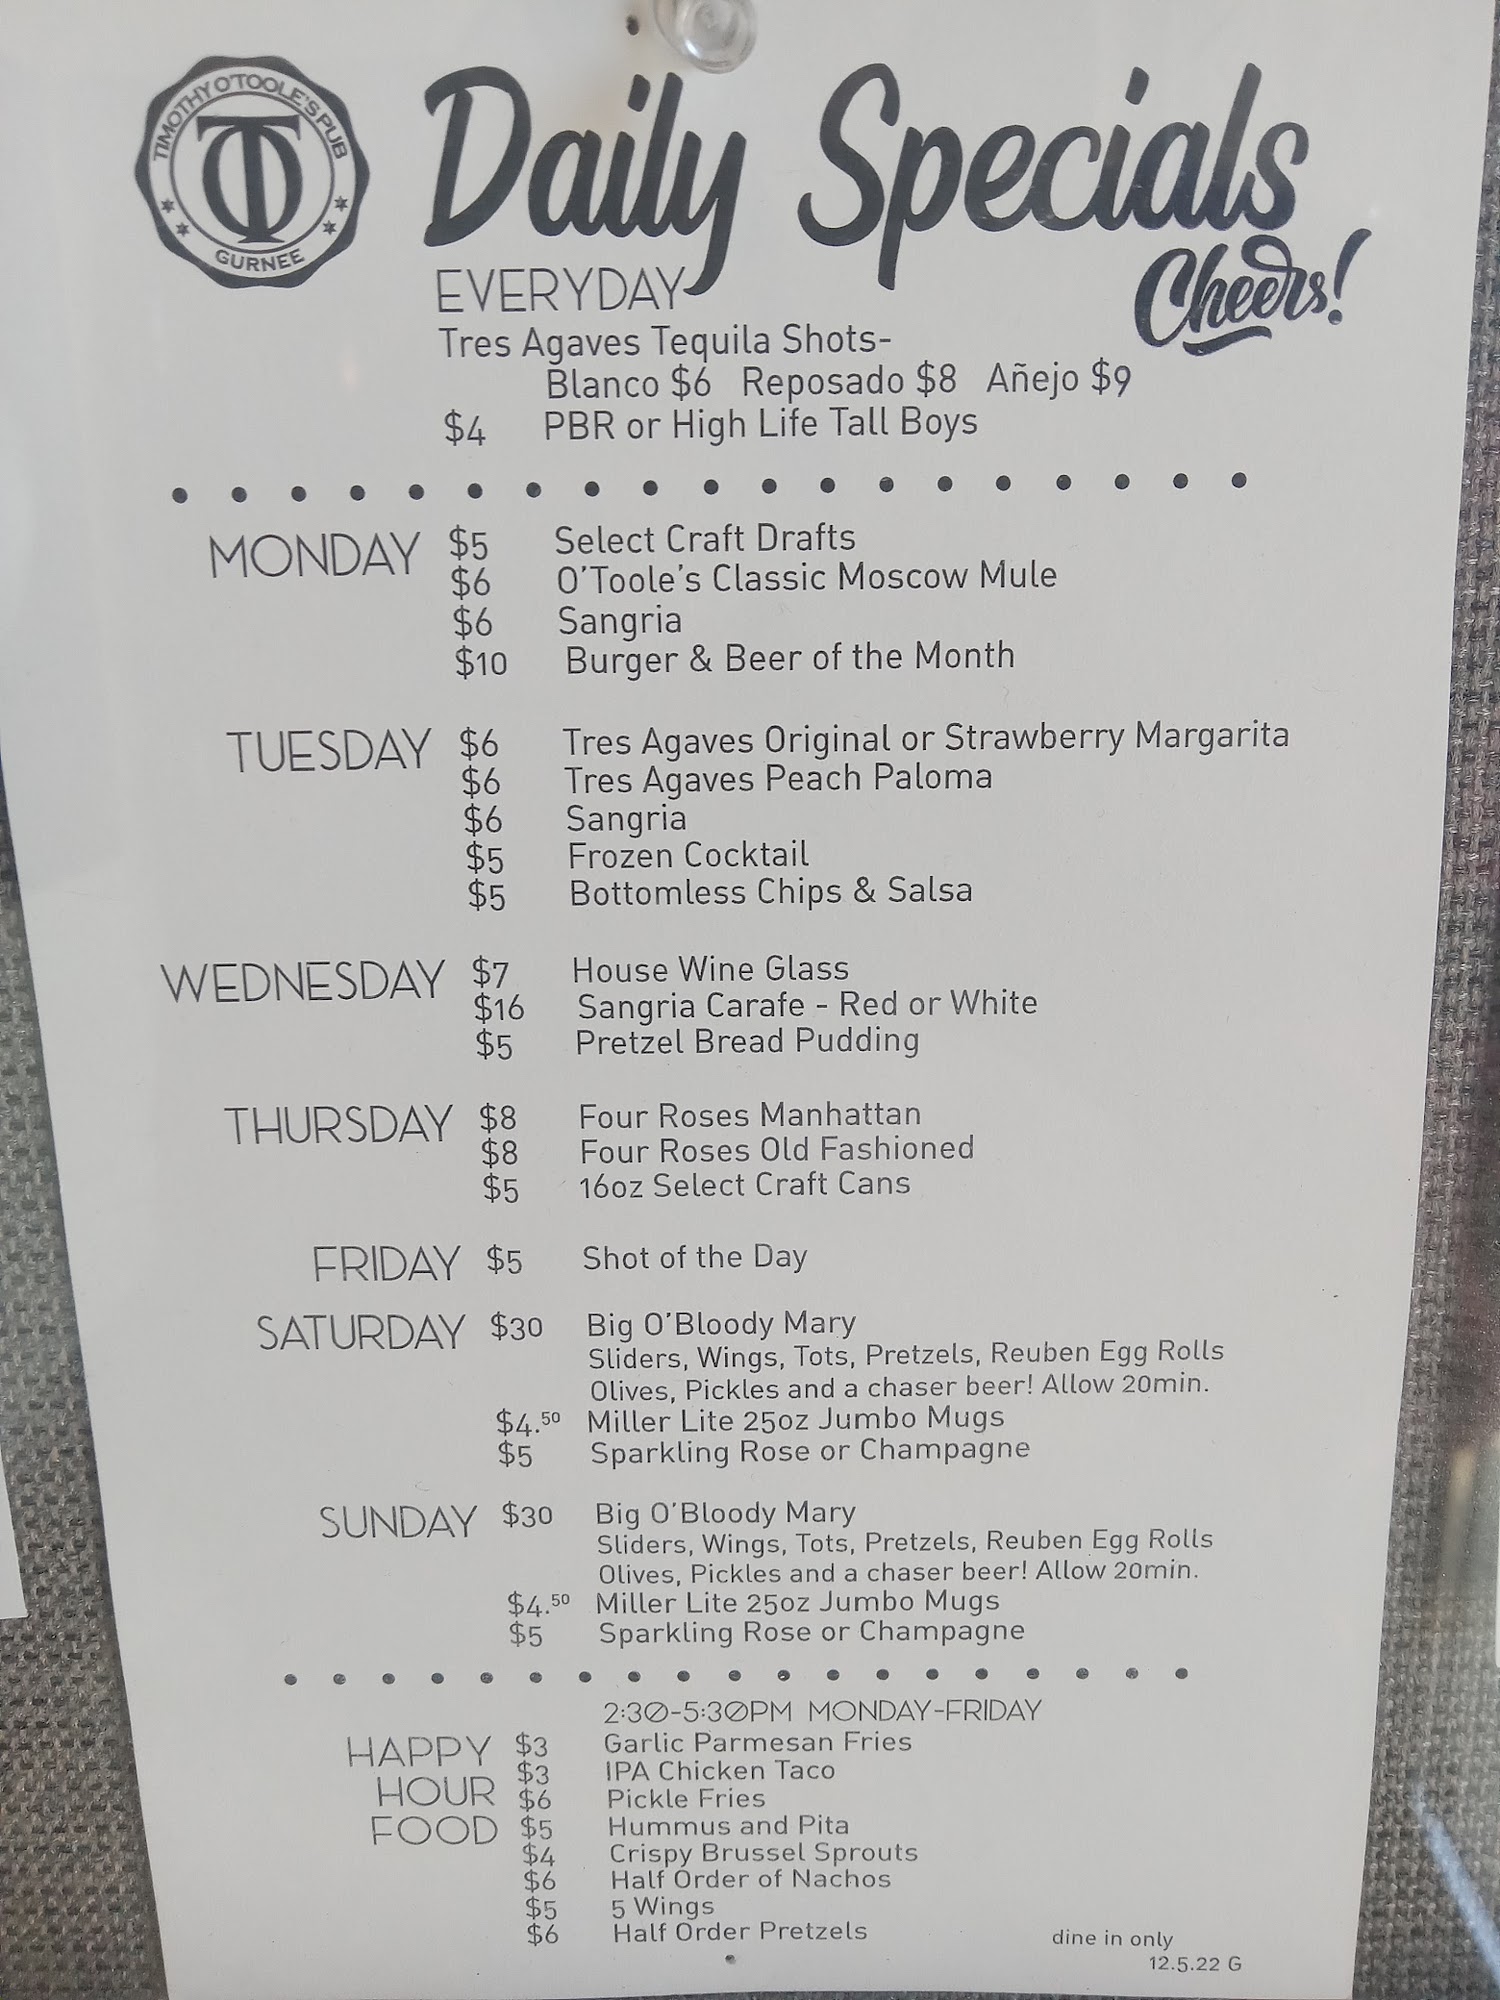 TIMOTHY O'TOOLE'S PUB
TO
GURNEE
Daily Specials
Cheers!
EVERYDAY
Tres Agaves Tequila Shots-
Blanco $6 Reposado $8 Añejo $9
$4 PBR or High Life Tall Boys
MONDAY $5 Select Craft Drafts
$6 O'Toole's Classic Moscow Mule
$6 Sangria
$10 Burger & Beer of the Month
TUESDAY $6 Tres Agaves Original or Strawberry Margarita
$6 Tres Agaves Peach Paloma
$6 Sangria
$5 Frozen Cocktail
$5 Bottomless Chips & Salsa
WEDNESDAY $7 House Wine Glass
$16 Sangria Carafe - Red or White
$5 Pretzel Bread Pudding
THURSDAY $8 Four Roses Manhattan
$8 Four Roses Old Fashioned
$5 16oz Select Craft Cans
FRIDAY $5 Shot of the Day
SATURDAY $30 Big O'Bloody Mary
Sliders, Wings, Tots, Pretzels, Reuben Egg Rolls
Olives, Pickles and a chaser beer! Allow 20min.
$4.50 Miller Lite 25oz Jumbo Mugs
$5 Sparkling Rose or Champagne
SUNDAY $30 Big O'Bloody Mary
Sliders, Wings, Tots, Pretzels, Reuben Egg Rolls
Olives, Pickles and a chaser beer! Allow 20min.
$4.50 Miller Lite 25oz Jumbo Mugs
$5 Sparkling Rose or Champagne
2:30-5:30PM MONDAY-FRIDAY
HAPPY $3 Garlic Parmesan Fries
$3 IPA Chicken Taco
HOUR $6 Pickle Fries
FOOD $5 Hummus and Pita
$4 Crispy Brussel Sprouts
$6 Half Order of Nachos
$5 5 Wings
$6 Half Order Pretzels
dine in only
12.5.22 G